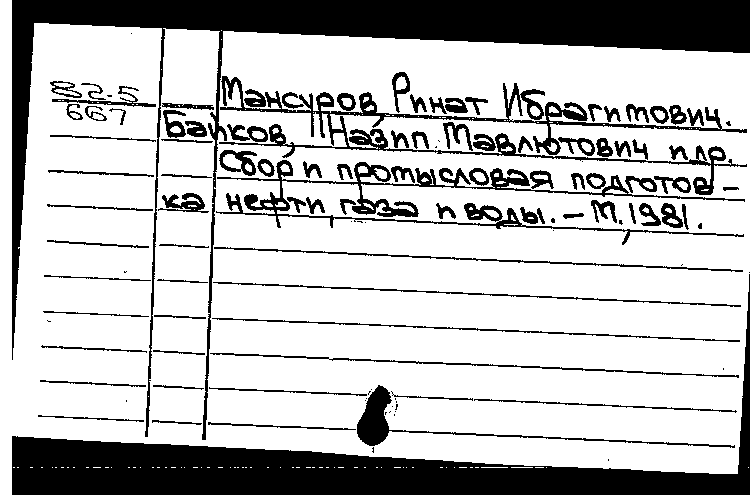 82.5
667
Мансуров Ринат Ибрагимович.
Байков Назип Мавлютович и др.
Сбор и промысловая подготов-
ка нефти, газа и воды. - М., 1981.